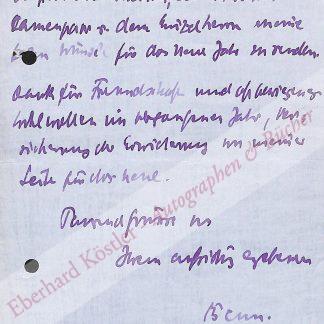 Damenpaar u. dem Einzelherrn meine
Wünsche für das neue Jahr zu senden.
Dank für Freundschaft und
Wohlwollen im vergangenen Jahr, Ver-
sicherung der Erwiderung von meiner
Seite für das neue.
Tausend Grüsse von
Ihrem aufrichtig ergebenen
Benn.
Eberhard Köstler Autographen & Bücher